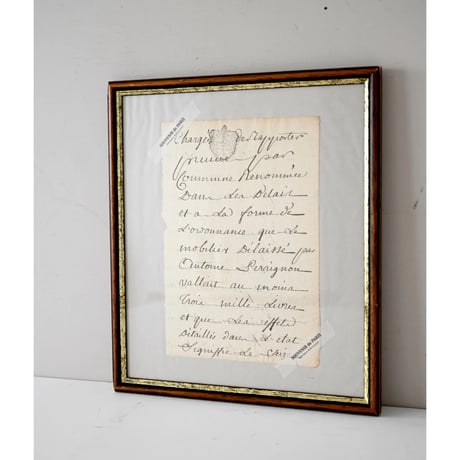 SOUVENIR de PARIS
Chargés de Rapporter
preuve par
Commune Renommée
Dans Les Délais
et a La forme de
L'ordonnance que Le
mobilier Délaissé par
Antoine Perrignon
Vallait au moins
Trois mille Livres
et que Les effets
Détaillés dans L'état
Signiffié Le
SOUVENIR de PARIS